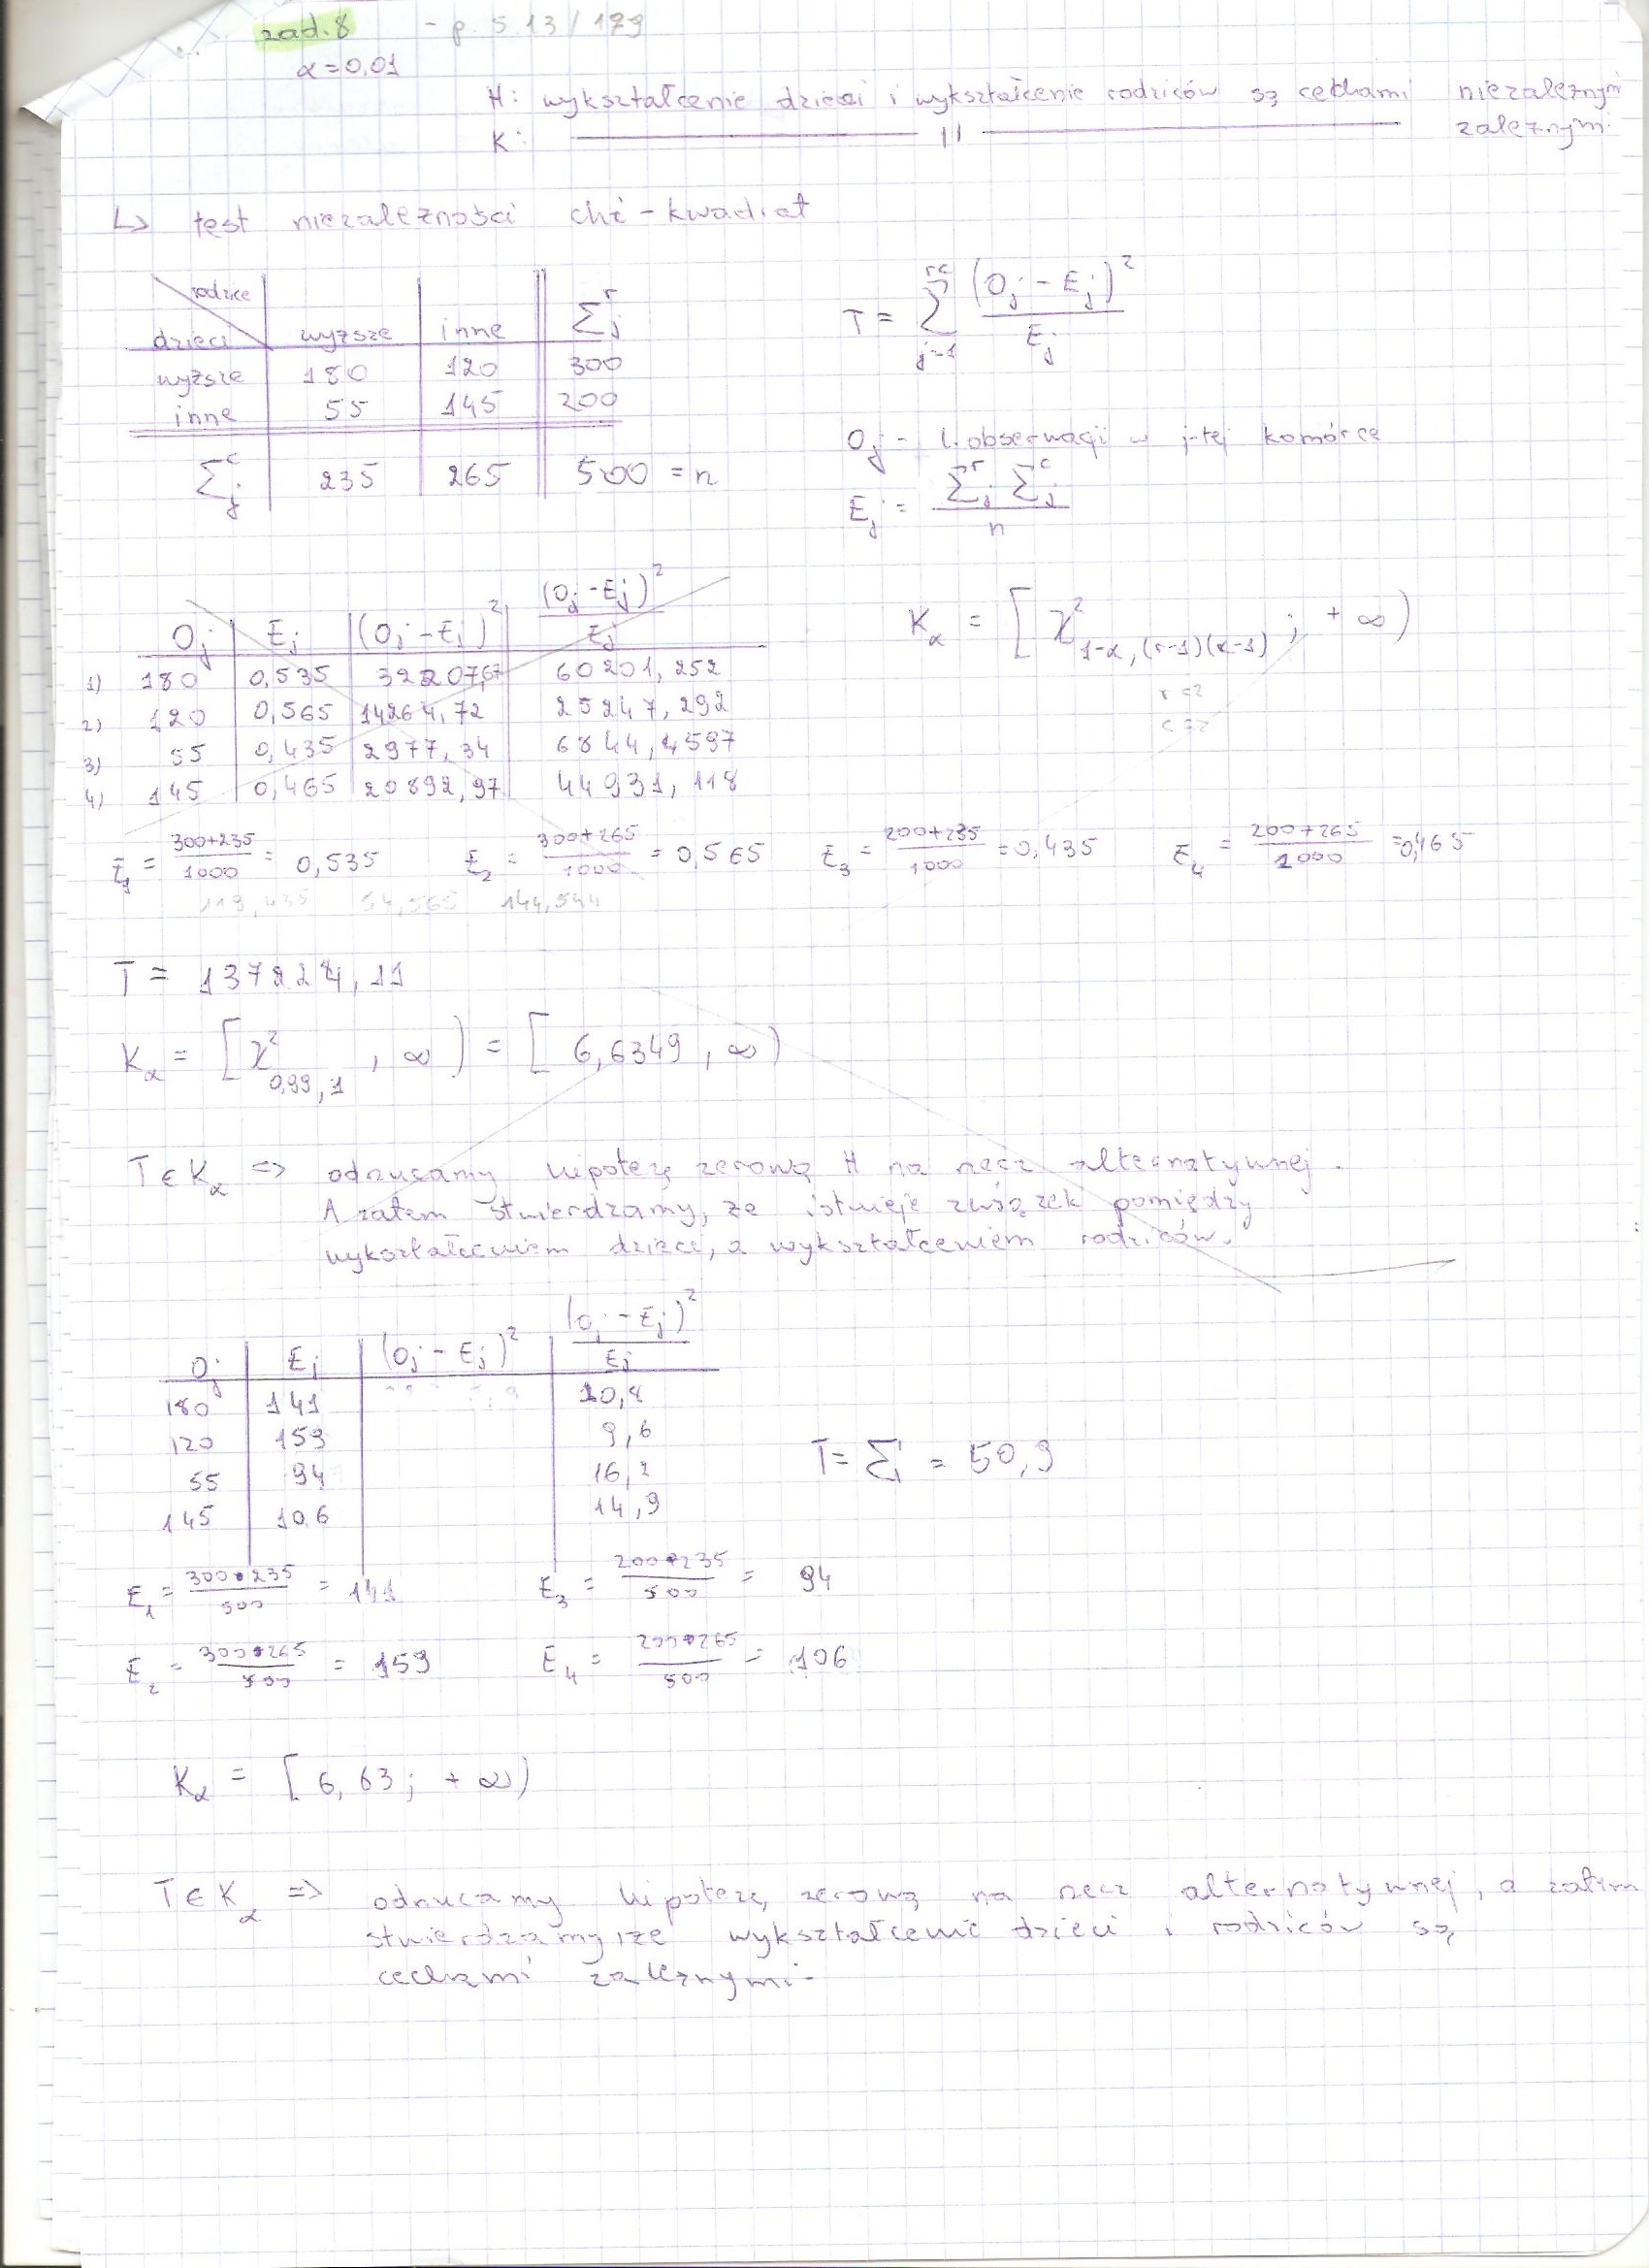 zad.8 - p. 5.13/179
α=0,01
H: wykształcenie dzieci i wykształcenie rodziców są cechami niezależnymi
K: —— 11 —— zależnymi
↳ test niezależności chi-kwadrat
rodzice
dzieci | wyższe | inne | Σ_j^r
wyższe | 180 | 120 | 300
inne | 55 | 145 | 200
Σ_j^c | 235 | 265 | 500 = n
T = Σ_{j=1}^{rc} (O_j - E_j)² / E_j
O_j - l. obserwacji w j-tej komórce
E_j = Σ_j^r Σ_j^c / n
O_j | E_j | (O_j - E_j)² | (O_j - E_j)² / E_j
1) 180 | 0,535 | 32207,67 | 60201,252
2) 120 | 0,565 | 14264,72 | 25247,292
3) 55 | 0,435 | 2977,34 | 6844,4597
4) 145 | 0,465 | 20892,97 | 44931,118
K_α = [χ²_{1-α,(r-1)(c-1)} ; +∞)
r=2
c=2
E_1 = 300+235 / 1000 = 0,535 E_2 = 300+265 / 1000 = 0,565 E_3 = 200+235 / 1000 = 0,435 E_4 = 200+265 / 1000 = 0,465
119,435 54,565 144,544
T = 137224,11
K_α = [χ²_{0,99,1} , ∞) = [6,6349 , ∞)
T ∈ K_α => odrzucamy hipotezę zerową H na rzecz alternatywnej.
A zatem stwierdzamy, że istnieje związek pomiędzy
wykształceniem dzieci, a wykształceniem rodziców.
O_j | E_j | (O_j - E_j)² | (O_j - E_j)² / E_j
180 | 141 | | 10,8
120 | 159 | | 9,6
55 | 94 | | 16,2
145 | 106 | | 14,9
T = Σ = 50,9
E_1 = 300•235 / 500 = 141 E_3 = 200•235 / 500 = 94
E_2 = 300•265 / 500 = 159 E_4 = 200•265 / 500 = 106
K_α = [6,63 ; +∞)
T ∈ K_α => odrzucamy hipotezę zerową na rzecz alternatywnej, a zatem
stwierdzamy, że wykształcenie dzieci i rodziców są
cechami zależnymi.